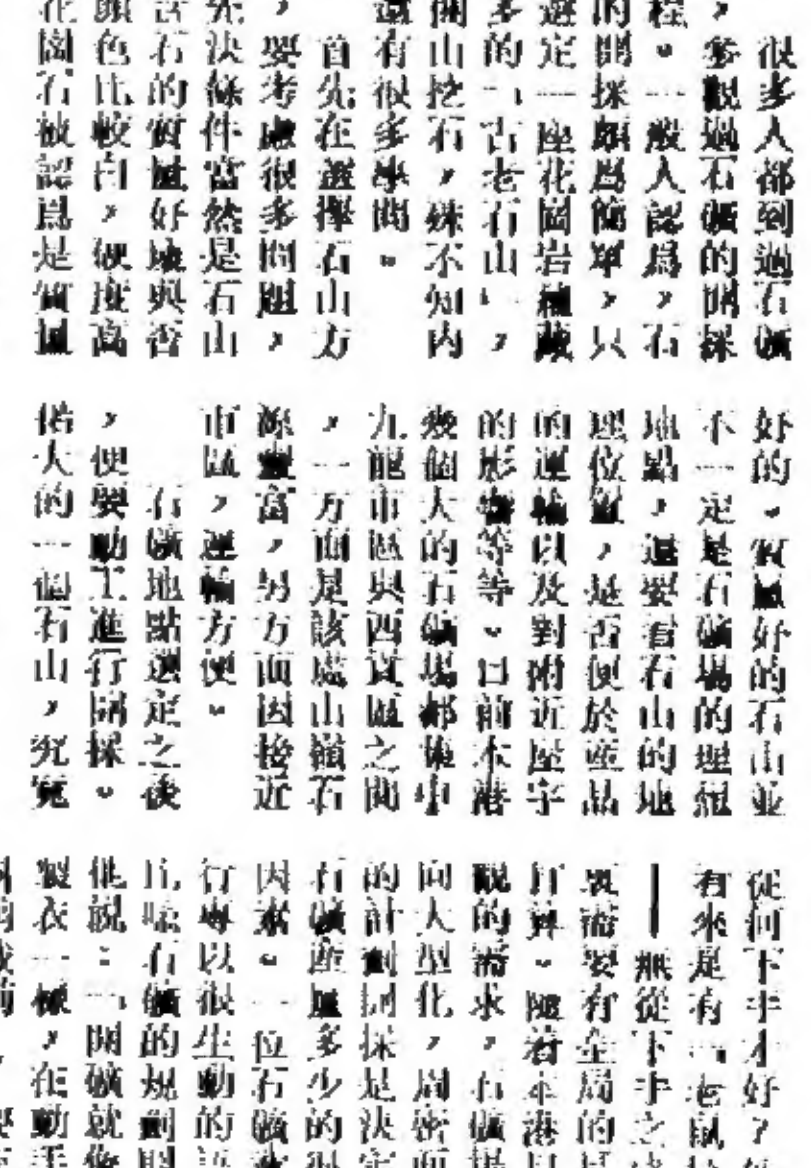 很多人都到過石礦
，參觀過石礦的開採
程。一般人認爲，石
的開採頗爲簡單，只
選定一座花崗岩蘊藏
多的「古老石山」，
開山挖石，殊不知內
還有很多學問。
首先在選擇石山方
，要考慮很多問題，
先決條件當然是石山
石的質量好壞與否
顏色比較白，硬度高
花崗石被認爲是質量
好的。質量好的石山並
不一定是石礦場的理想
地點，還要看石山的地
理位置，是否便於產品
的運輸以及對附近屋宇
的影響等等。目前本港
幾個大的石礦場都集中
九龍市區與西貢區之間
，一方面是該處山嶺石
源豐富，另方面因接近
市區，運輸方便。
石礦地點選定之後
，便要動工進行開採。
偌大的一個石山，究竟
從何下手才好？
有來是有「老鼠
──無從下手之
要需要有全局的
打算。隨着本港
觀的需求，石礦場
向大型化，周密而
的計劃開採是決定
石礦產量多少的
因素。一位石礦
行專以很生動的
比喻石礦的規劃
他說：「開礦就像
製衣一樣，在動手